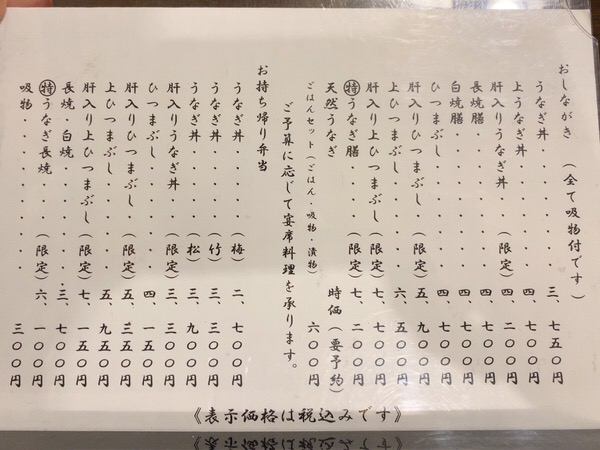 おしながき (全て吸物付です)
うなぎ丼・・・・・三、七五〇円
上うなぎ丼・・・・四、七〇〇円
肝入りうなぎ丼・(限定)四、二〇〇円
長焼膳・・・・・・四、七〇〇円
白焼膳・・・・・・四、七〇〇円
ひつまぶし・・・・四、七〇〇円
肝入りひつまぶし・(限定)五、九〇〇円
上ひつまぶし・・・・六、五〇〇円
肝入り上ひつまぶし(限定)七、七〇〇円
㊕うなぎ膳・・・・(限定)七、二〇〇円
天然うなぎ 時価(要予約)
ごはんセット(ごはん・吸物・漬物) 六〇〇円
ご予算に応じて宴席料理を承ります。
お持ち帰り弁当
うなぎ丼・・・・(梅)二、七〇〇円
うなぎ丼・・・・(竹)三、三〇〇円
うなぎ丼・・・・(松)三、九〇〇円
肝入りうなぎ丼・・(限定)三、三〇〇円
ひつまぶし・・・・・四、一五〇円
肝入りひつまぶし・(限定)五、三五〇円
上ひつまぶし・・・・五、九五〇円
肝入り上ひつまぶし(限定)七、一五〇円
長焼・白焼・・・・・三、七〇〇円
㊕うなぎ長焼・・(限定)六、一〇〇円
吸物・・・・・・・・三〇〇円
《表示価格は税込みです》